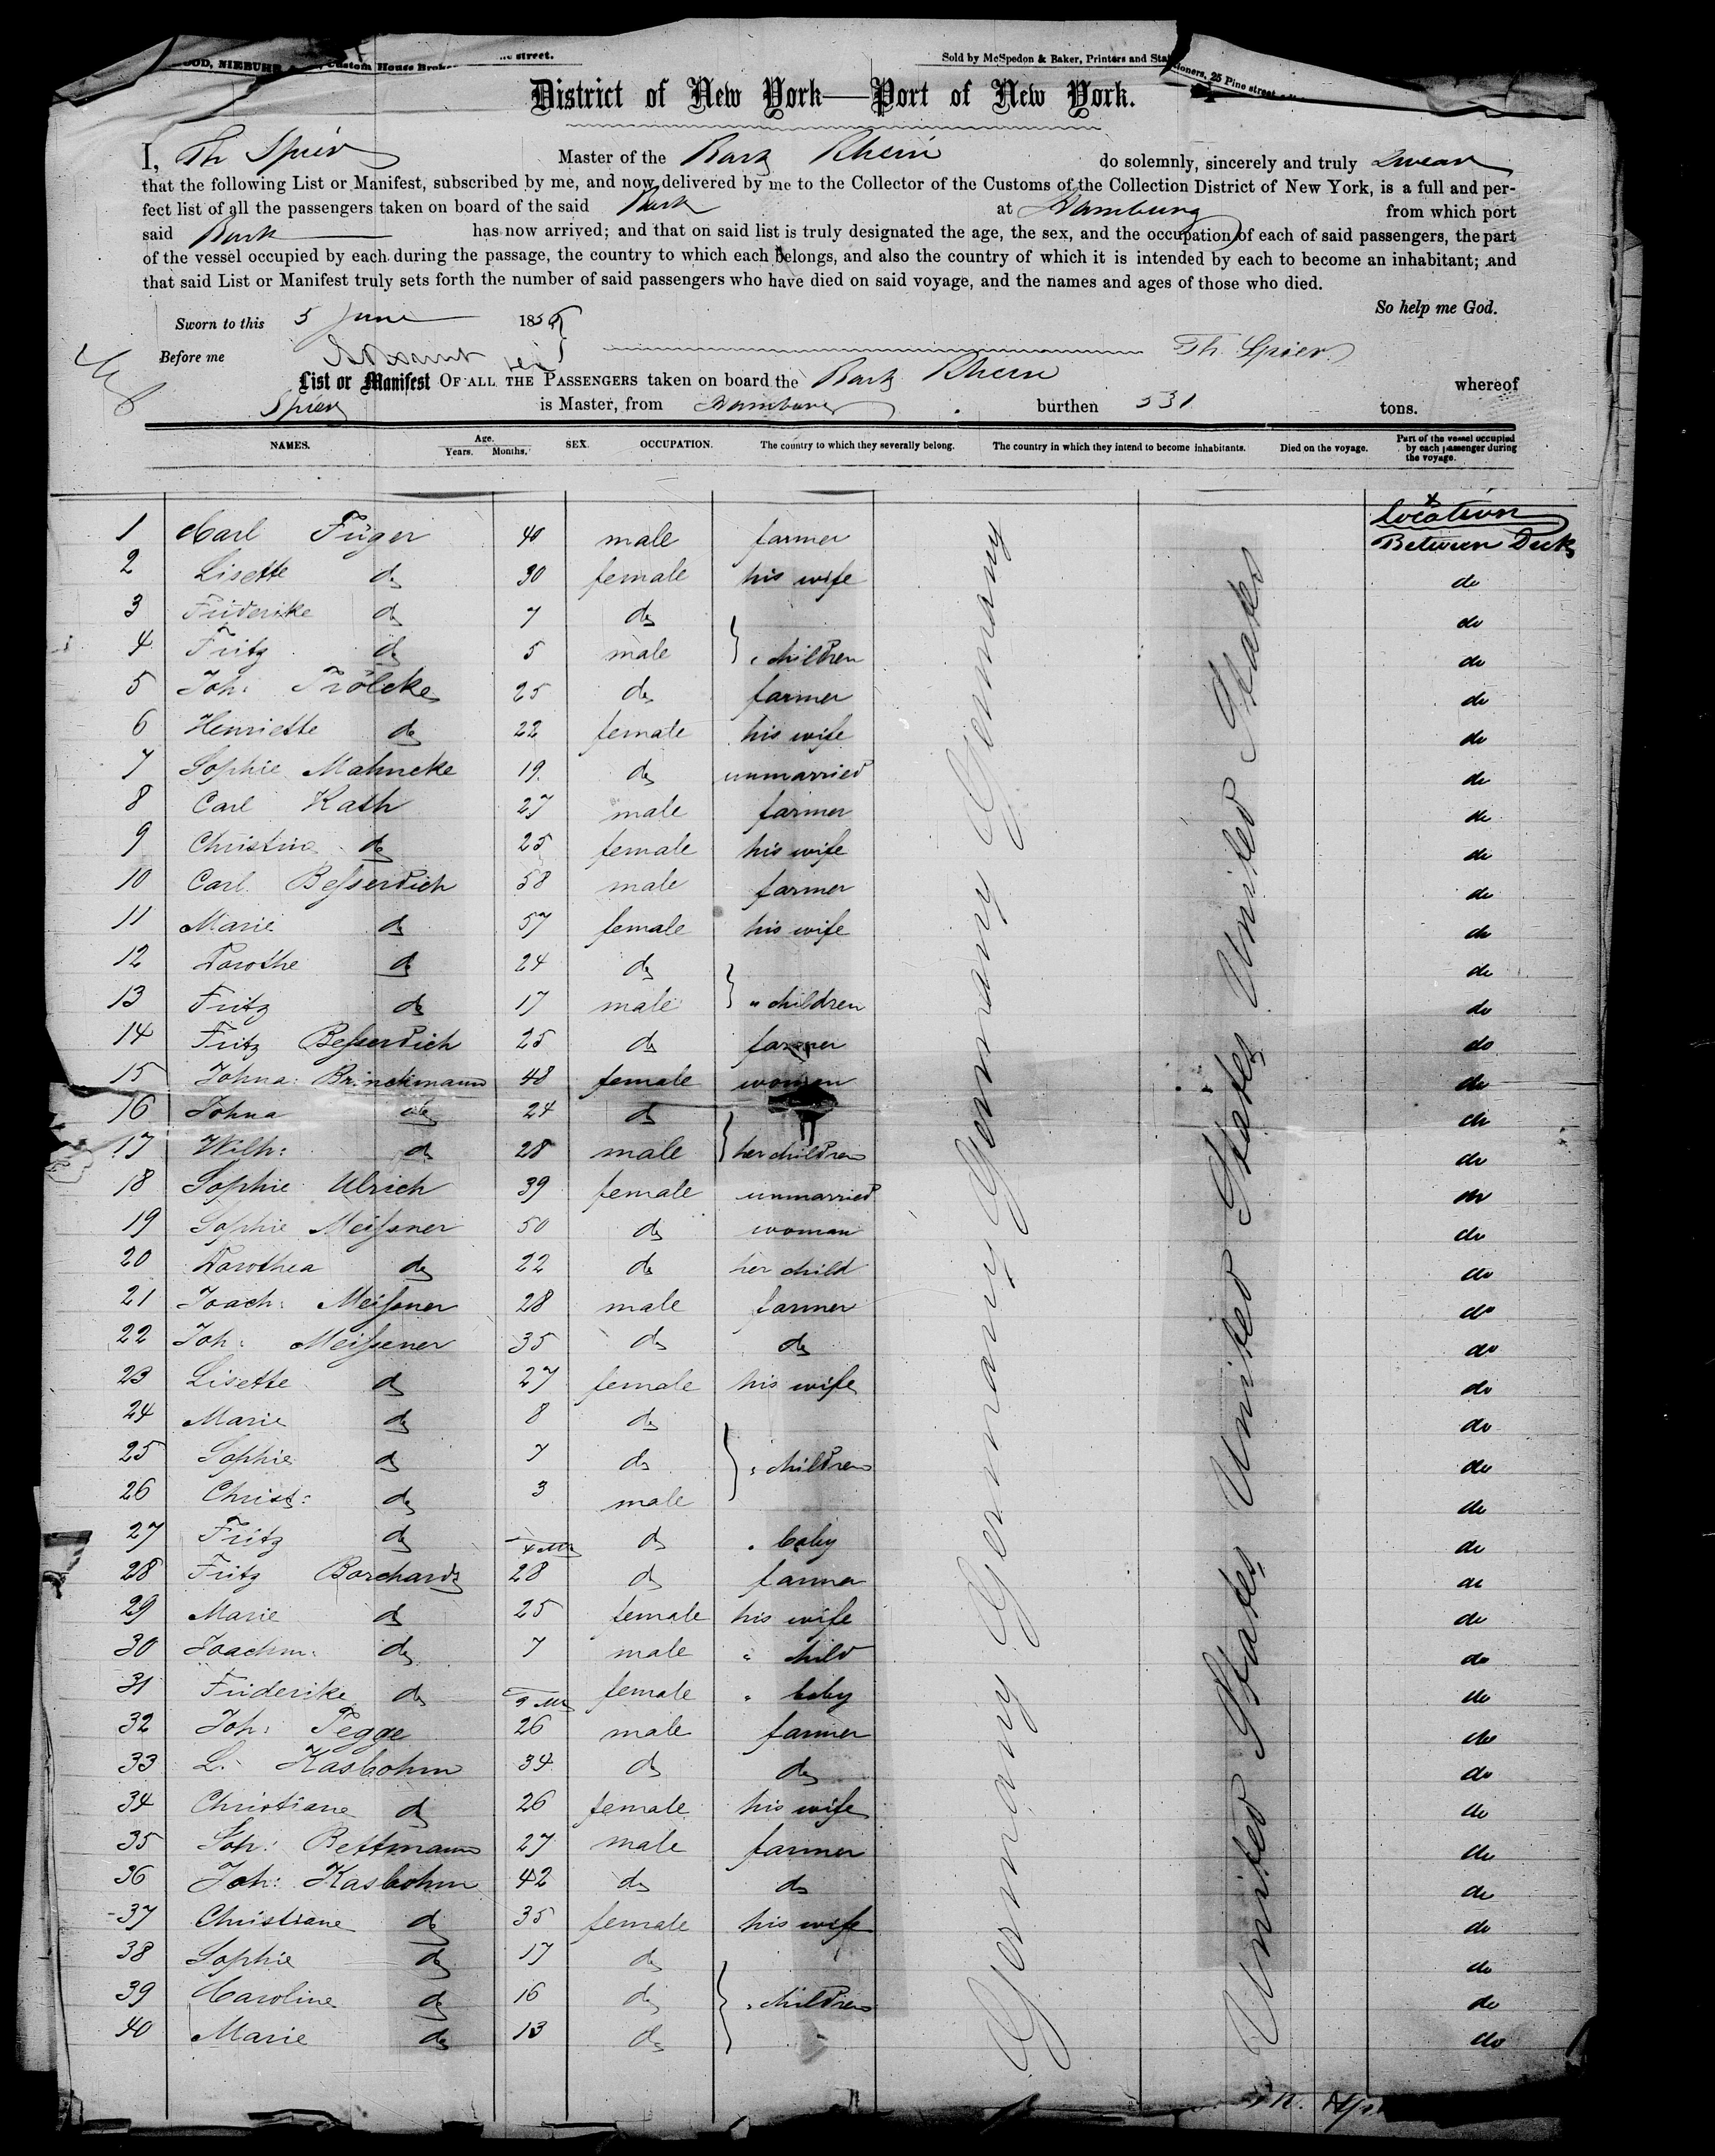 OOD, NIEBUHR Custom House Broke street.
Sold by McSpedon & Baker, Printers and Stationers, 25 Pine street
District of New York—Port of New York.
I, Th Spier Master of the Bark Rhein do solemnly, sincerely and truly swear
that the following List or Manifest, subscribed by me, and now delivered by me to the Collector of the Customs of the Collection District of New York, is a full and per-
fect list of all the passengers taken on board of the said Bark at Hamburg from which port
said Bark has now arrived; and that on said list is truly designated the age, the sex, and the occupation of each of said passengers, the part
of the vessel occupied by each during the passage, the country to which each belongs, and also the country of which it is intended by each to become an inhabitant; and
that said List or Manifest truly sets forth the number of said passengers who have died on said voyage, and the names and ages of those who died.
So help me God.
Sworn to this 5 June 1856
Before me Th. Spier
List or Manifest OF ALL THE PASSENGERS taken on board the Bark Rhein whereof
Spier is Master, from Hamburg burthen 331 tons.
NAMES. Age. Years. Months. SEX. OCCUPATION. The country to which they severally belong. The country in which they intend to become inhabitants. Died on the voyage. Part of the vessel occupied by each passenger during the voyage.
Location
1 Carl Füger 40 male farmer Between Deck
2 Lisette do 30 female his wife do
3 Friderike do 7 do do
4 Fritz do 5 male " children do
5 Joh: Trölcke 25 do farmer do
6 Henriette do 22 female his wife do
7 Sophie Mahncke 19 do unmarried do
8 Carl Kath 27 male farmer do
9 Christine do 25 female his wife do
10 Carl Besserdich 58 male farmer do
11 Marie do 57 female his wife do
12 Dorothe do 24 do do
13 Fritz do 17 male " children do
14 Fritz Besserdich 25 do farmer do
15 Johna: Brinckmann 48 female woman do
16 Johna do 24 do do
17 Wilh: do 28 male her children do
18 Sophie Ulrich 39 female unmarried do
19 Sophie Meissner 50 do woman do
20 Dorothea do 22 do her child do
21 Joach: Meissner 28 male farmer do
22 Joh: Meissener 35 do do do
23 Lisette do 27 female his wife do
24 Marie do 8 do do
25 Sophie do 7 do " children do
26 Christ: do 3 male do
27 Fritz do 4 Ms do " baby do
28 Fritz Borchardt 28 do farmer do
29 Marie do 25 female his wife do
30 Joachm: do 7 male " child do
31 Friderike do 9 Ms female " baby do
32 Joh: Tegge 26 male farmer do
33 L. Kasbohm 34 do do do
34 Christiane do 26 female his wife do
35 Joh: Bettmann 27 male farmer do
36 Joh: Kasbohm 42 do do do
37 Christiane do 35 female his wife do
38 Sophie do 17 do do
39 Caroline do 16 do " children do
40 Marie do 13 do do
Germany Germany Germany Germany Germany
United States United States United States United States